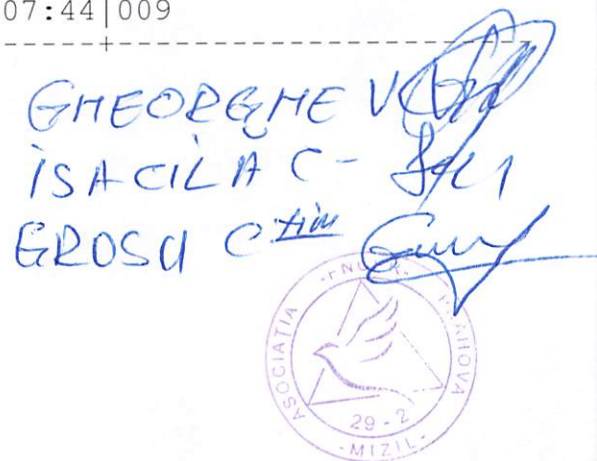 07:44|009
--------+--------
GHEORGHE V
ISACILA C-
GROSU C tin
ASOCIATIA
PRAHOVA
29 - 2
- MIZIL -